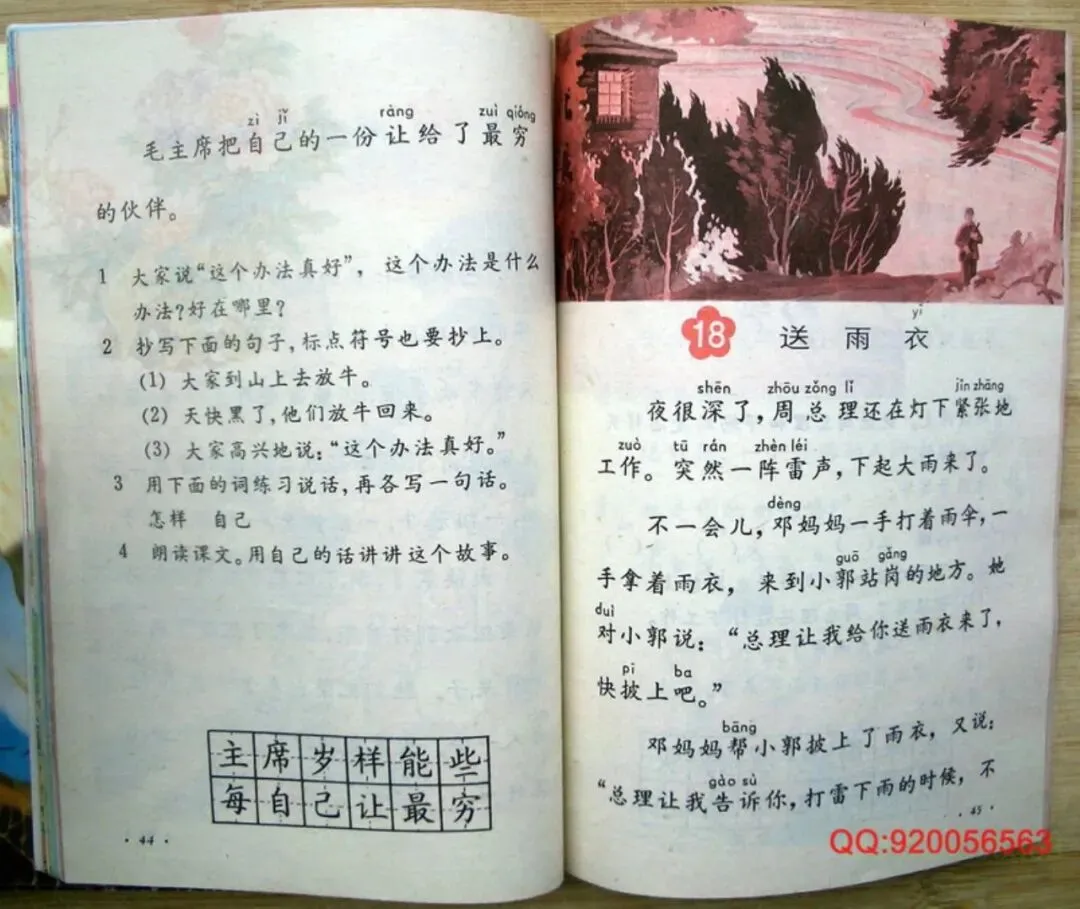 zì jǐ ràng zuì qióng
毛主席把自己的一份让给了最穷
的伙伴。
1 大家说“这个办法真好”，这个办法是什么
办法？好在哪里？
2 抄写下面的句子，标点符号也要抄上。
(1) 大家到山上去放牛。
(2) 天快黑了，他们放牛回来。
(3) 大家高兴地说：“这个办法真好。”
3 用下面的词练习说话，再各写一句话。
怎样 自己
4 朗读课文。用自己的话讲讲这个故事。
主席岁样能些
每自己让最穷
· 44 ·
yī
18 送雨衣
shēn zhōu zǒng lǐ jǐn zhāng
夜很深了，周总理还在灯下紧张地
zuò tū rán zhèn léi
工作。突然一阵雷声，下起大雨来了。
dèng
不一会儿，邓妈妈一手打着雨伞，一
guō gǎng
手拿着雨衣，来到小郭站岗的地方。她
duì
对小郭说：“总理让我给你送雨衣来了，
pī ba
快披上吧。”
bāng
邓妈妈帮小郭披上了雨衣，又说：
gào sù
“总理让我告诉你，打雷下雨的时候，不
· 45 ·
QQ:920056563